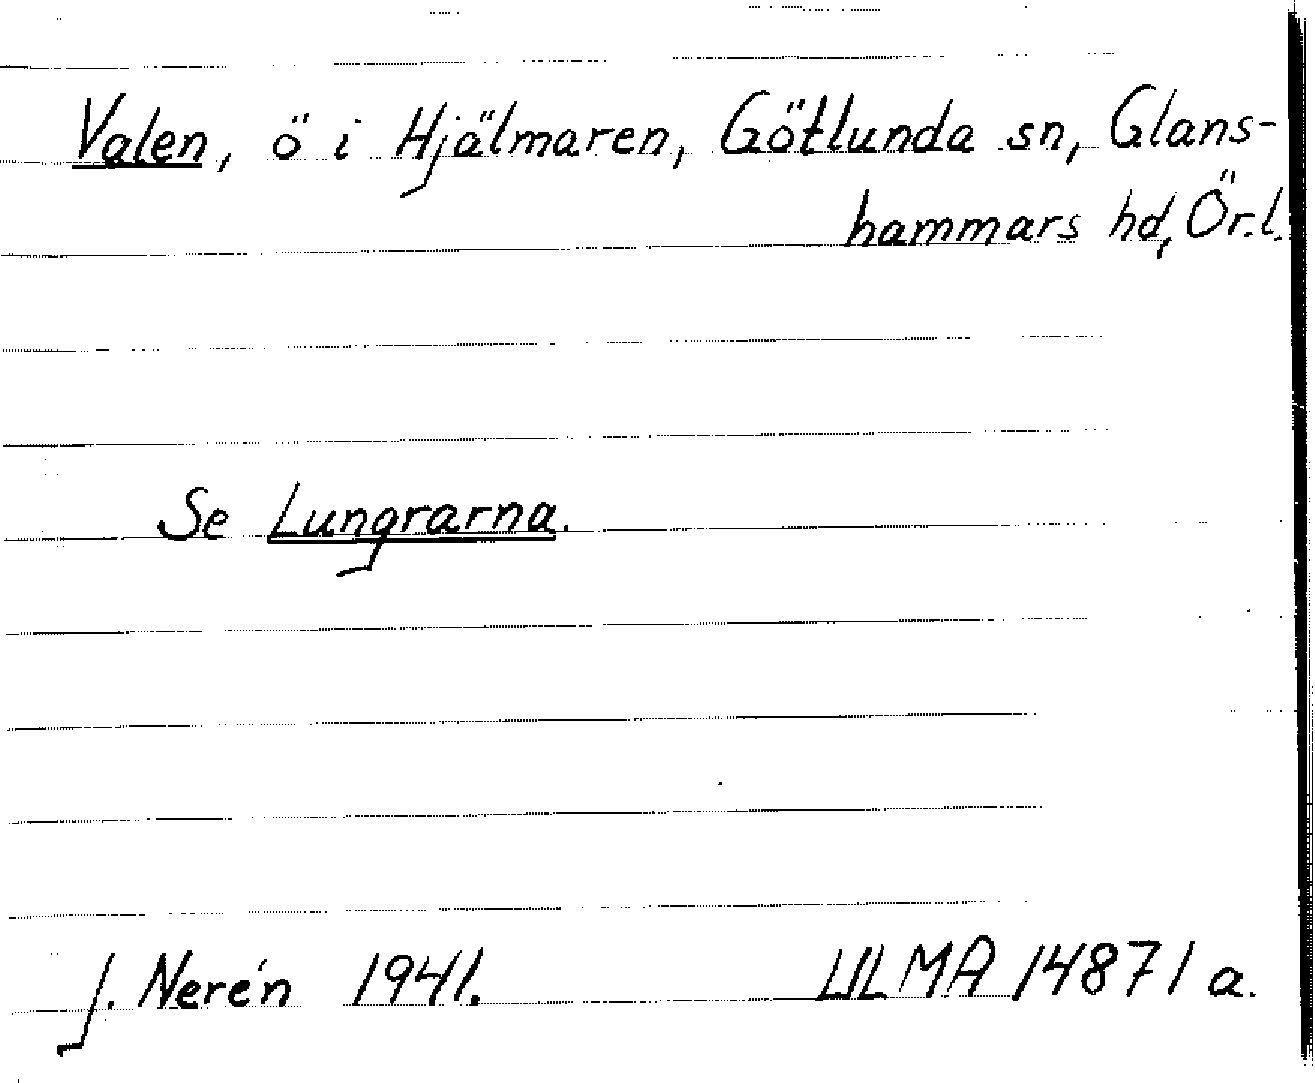 Valen, ö i Hjälmaren, Götlunda sn, Glans-
hammars hd, Ör.l.
Se Lungrarna.
J. Nerén 1941. ULMA 14871 a.